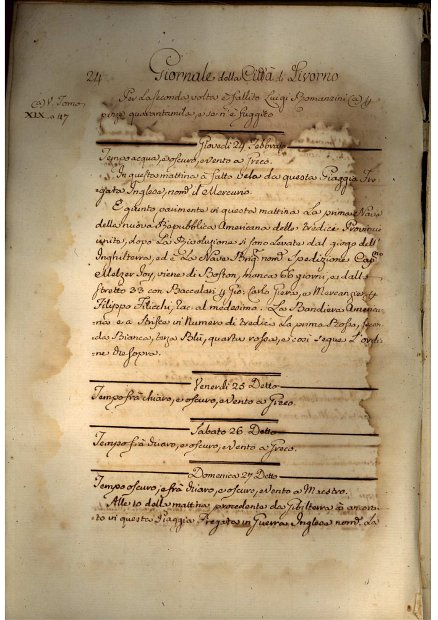 24 Giornale della Città di Livorno
(a) V. Tomo
XIX. a 47
Per la seconda volta è fallito Luigi Bomanzini (a) p
più quarantamila, e se n'è fuggito.
Giovedì 24 Febbrajo
Tempo acqua, e oscuro, e vento a Greco.
In questa mattina à fatto Vela da questa Piaggia Fre-
gata Inglese, nom. il Mercurio.
È giunto parimente in questa mattina la prima Nave
della nuova Repubblica Americana delle tredici Provincie
unite, dopo la Rivoluzione si sono levate dal giogo dell'
Inghilterra, ed è la Nave nom. Spedizione Cap.
Joy, viene di Boston, manca 56 giorni, e dallo
stretto 33 con Baccalari p Gio: Carlo e Mercanzie p
Filippo al medesimo. La Bandiera Ameri-
cana è a Strisce in Numero di tredici la prima Rossa, secon-
da Bianca, terza Blù, quarta rossa, e così segue l'ordi-
ne di sopra.
Venerdì 25 Detto
Tempo frà chiaro, e oscuro, e Vento a Greco.
Sabato 26 Detto
Tempo frà chiaro, e oscuro, e Vento a Greco.
Domenica 27 Detto
Tempo oscuro, e frà chiaro, e oscuro, e Vento a Maestro.
Alle 10 della mattina procedente da Gibilterra à ancora-
to in questa Piaggia Fregata in Guerra Inglese nom. La